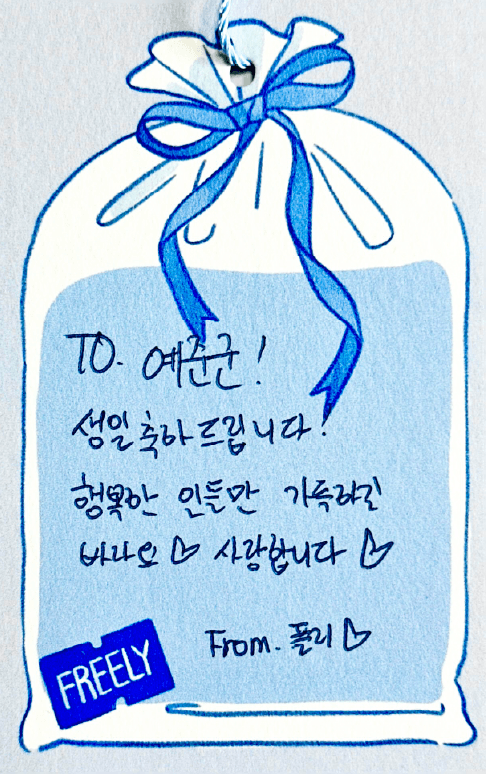 TO. 예준군!
생일 축하드립니다!
행복한 인들만 가득하길
바라요 ♡ 사랑합니다 ♡
From. 플리 ♡
FREELY